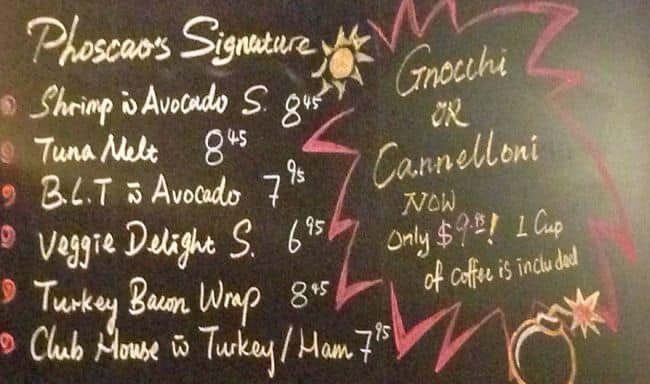 Phoscao's Signature
Shrimp w̄ Avocado S. 8.45
Tuna Melt 8.45
B.L.T w̄ Avocado 7.95
Veggie Delight S. 6.95
Turkey Bacon Wrap 8.45
Club House w̄ Turkey/Ham 7.95
Gnocchi
OR
Cannelloni
NOW
Only $9.95! 1 Cup
of coffee is included